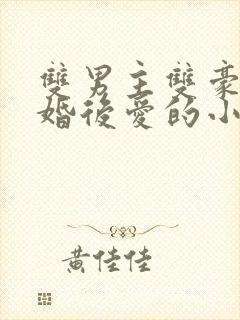 雙男主雙豪
婚後愛的小
黃佳佳